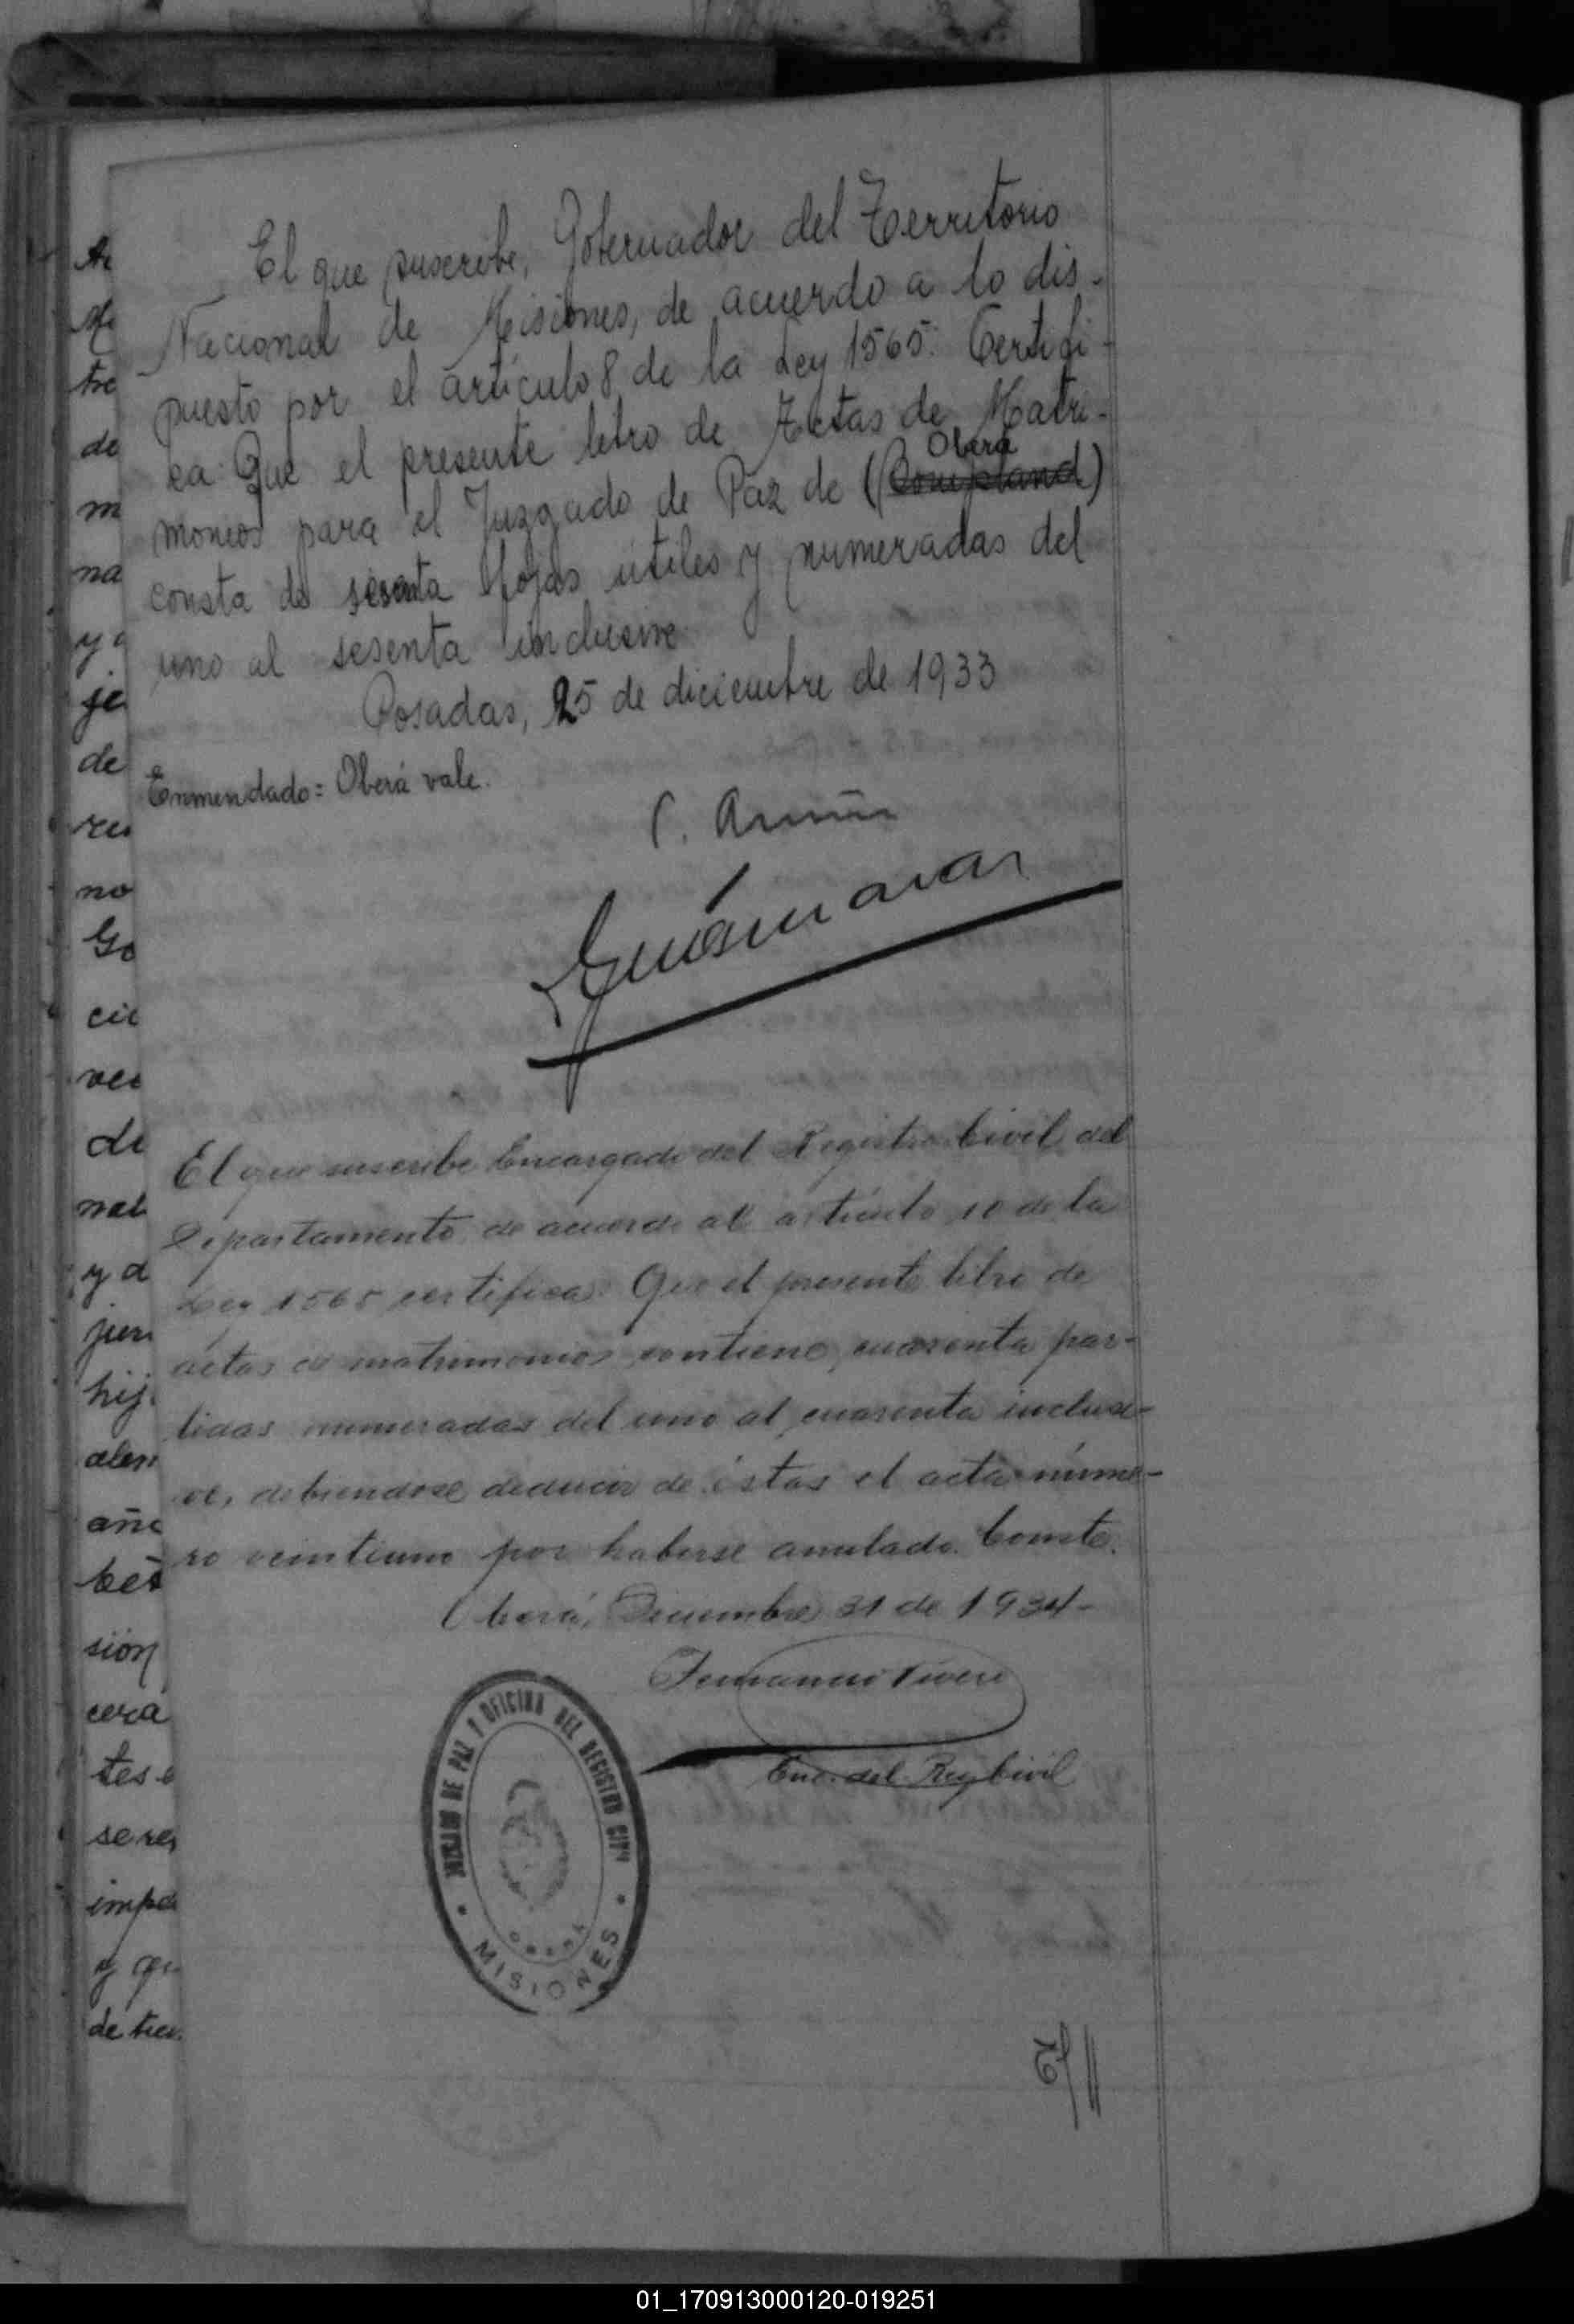 El que suscribe, Gobernador del Territorio
Nacional de Misiones, de acuerdo a lo dis-
puesto por el artículo 8 de la Ley 1565: Certifi-
ca: Que el presente libro de Actas de Matri-
Oberá
monios para el Juzgado de Paz de (Bompland)
consta de sesenta fojas útiles y numeradas del
uno al sesenta inclusive
Posadas, 25 de diciembre de 1933
Enmendado = Oberá vale.
El que suscribe Encargado del Registro Civil del
Departamento de acuerdo al artículo 10 de la
Ley 1565 certifica: Que el presente libro de
actas de matrimonios contiene cuarenta par-
tidas numeradas del uno al cuarenta inclusi-
ve, debiendose deducir de éstas el acta núme-
ro veintiuno por haberse anulado. Conste.
Oberá, Diciembre 31 de 1934-
Enc. del Reg Civil
JUZGADO DE PAZ Y OFICINA DEL REGISTRO CIVIL
OBERÁ
MISIONES
Ar
tre
de
m
na
je
de
no
Go
cii
ver
di
nal
y d
hij
año
sión
cera
tes
se
impe
y
de
01_170913000120-019251